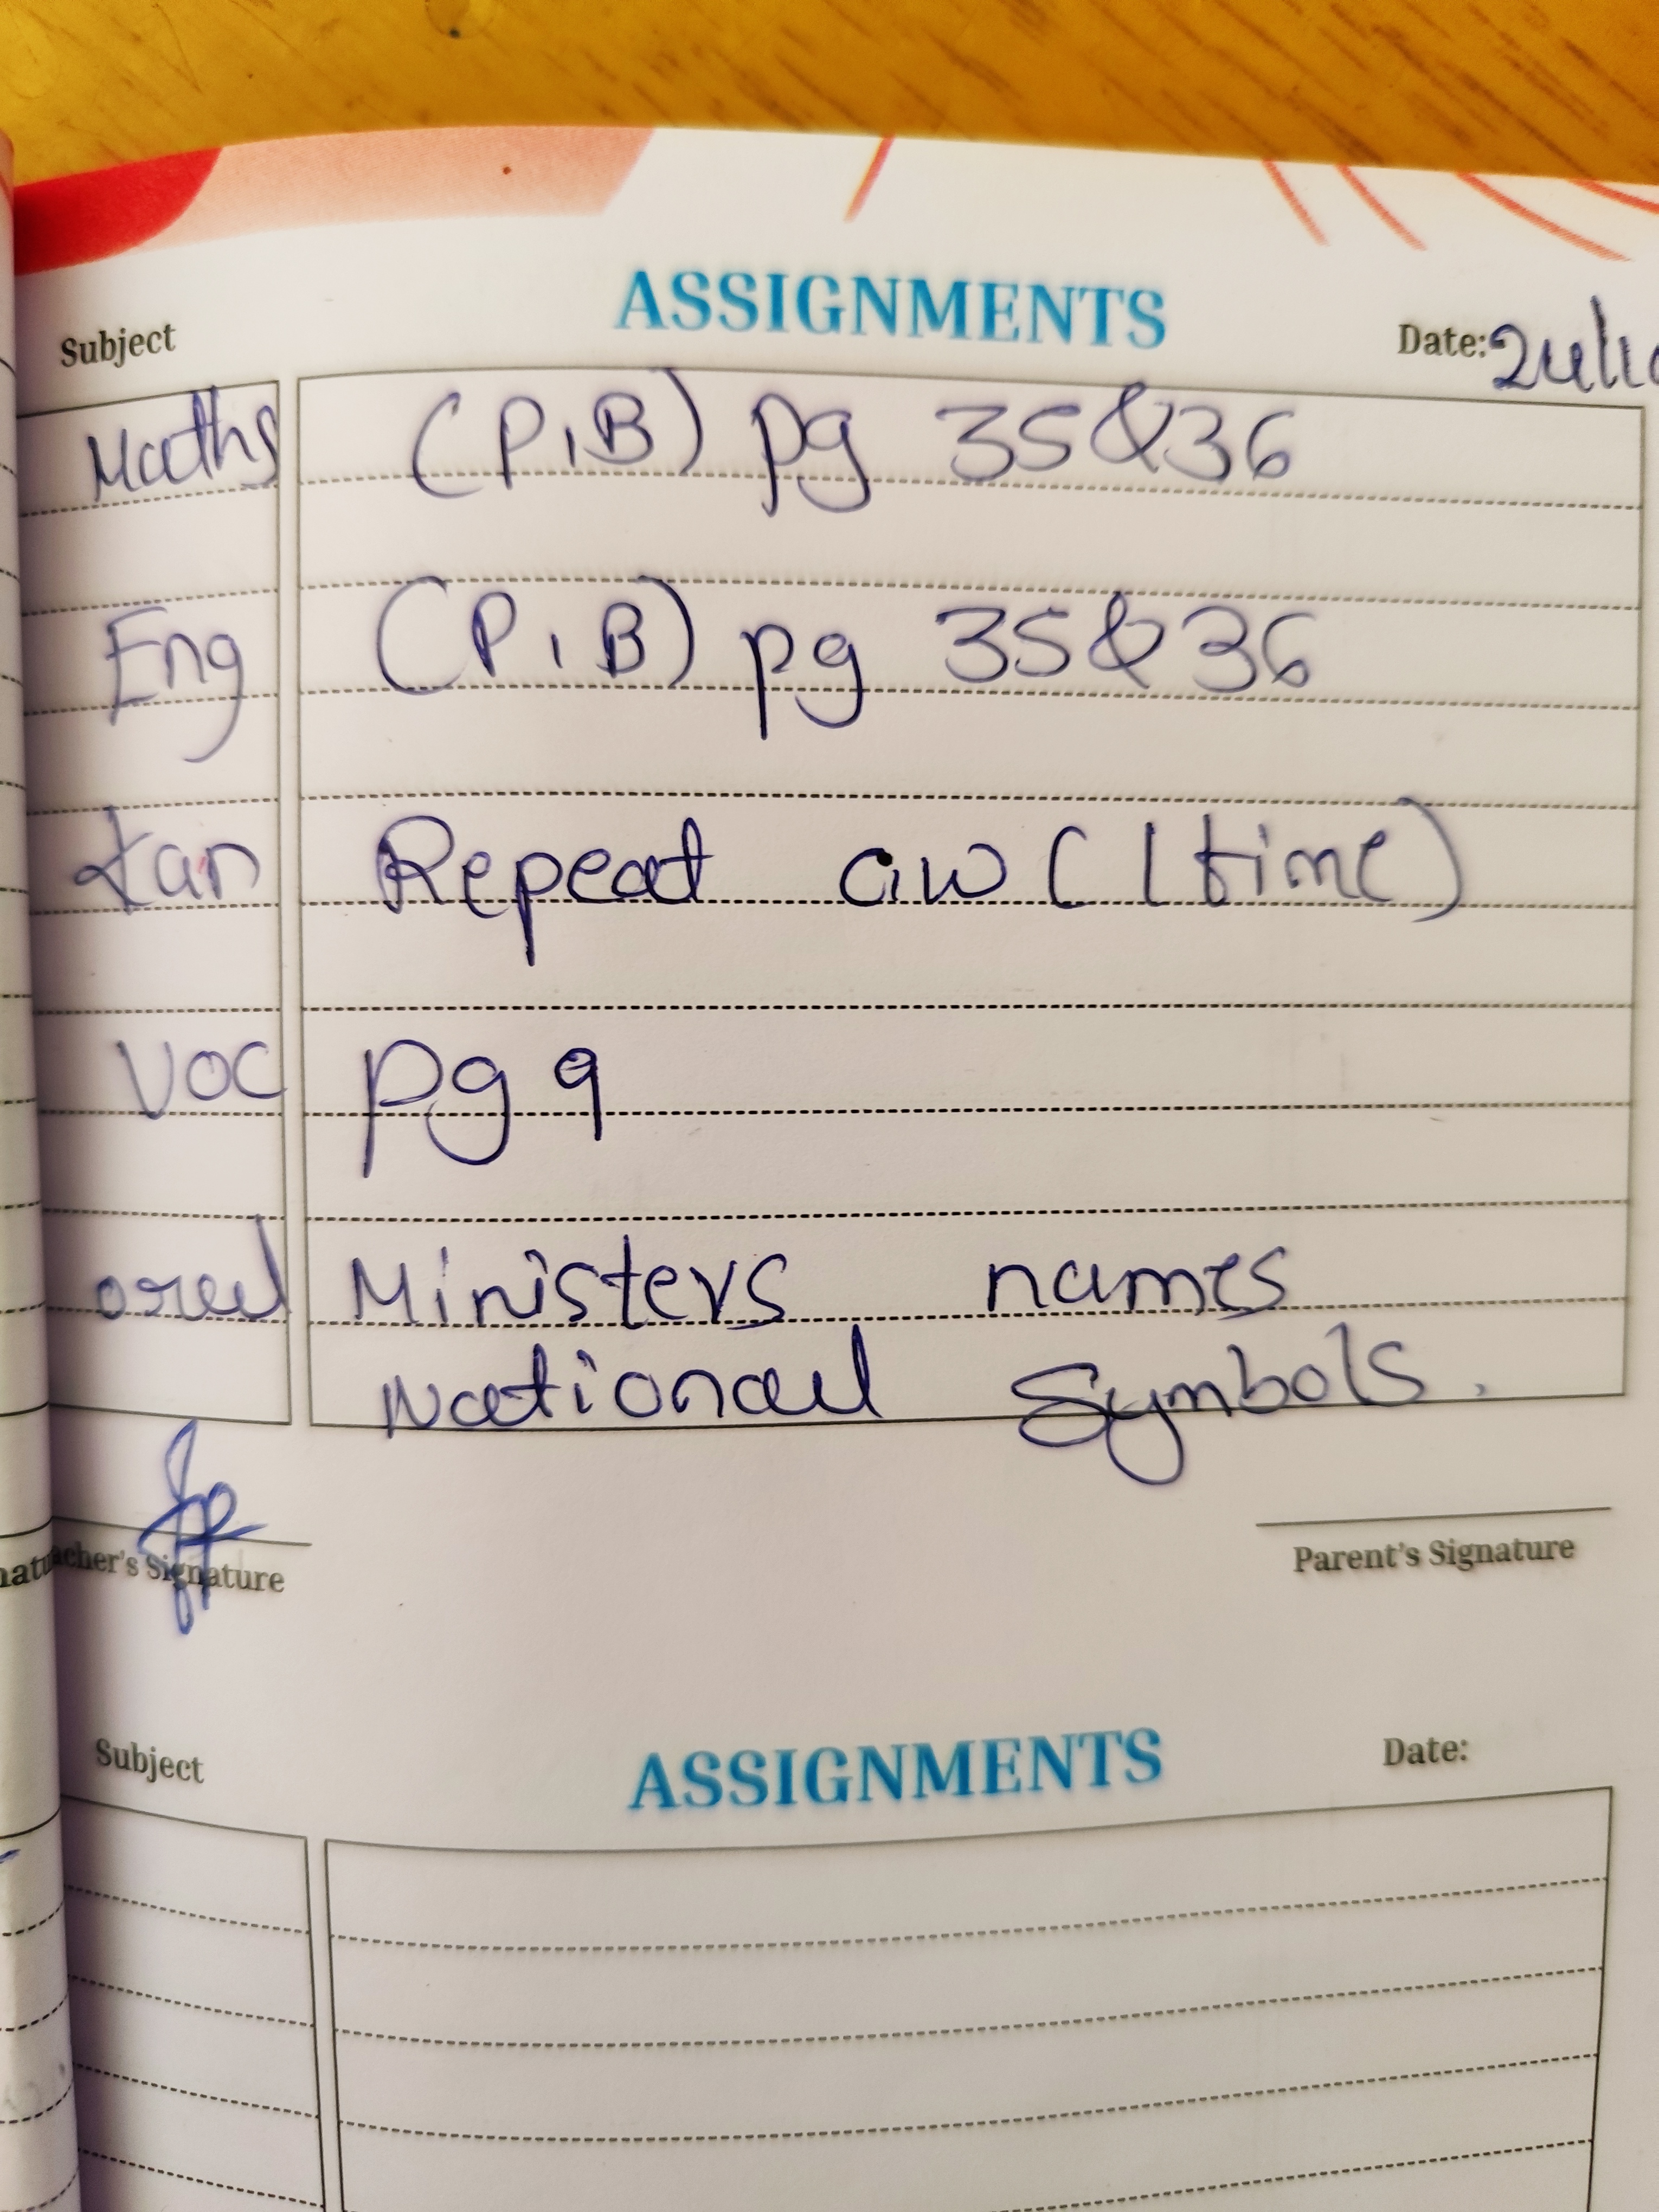 ASSIGNMENTS
Subject
Date: 24/10
Maths (P.B) pg 35 & 36
Eng (P.B) pg 35 & 36
Kan Repeat c.w (1 time)
Voc pg 9
oral Ministers names
National Symbols.
Teacher's Signature
Parent's Signature
ASSIGNMENTS
Subject
Date: